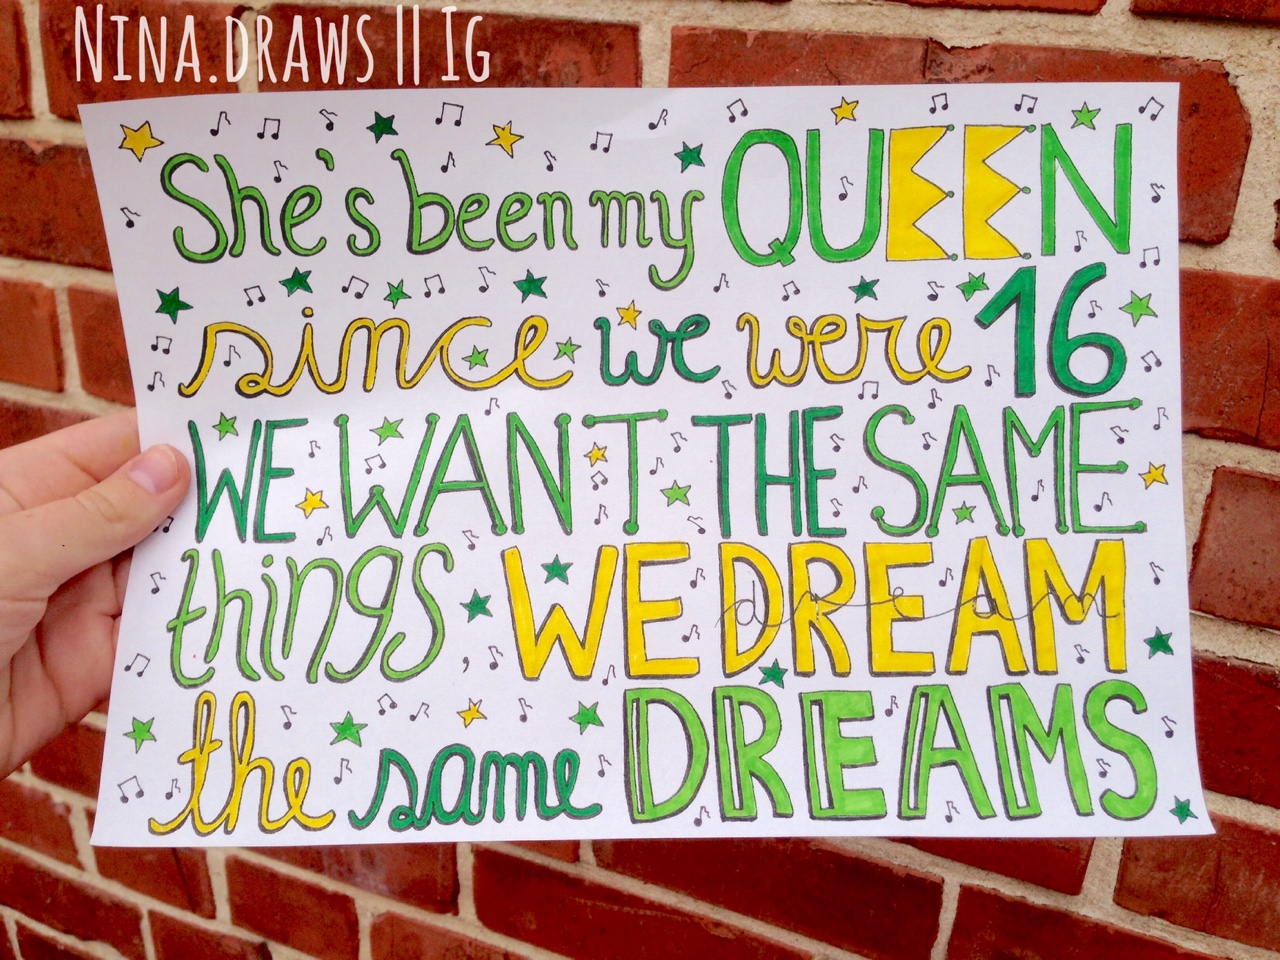 NINA.DRAWS || IG
She's been my QUEEN
since we were 16
WE WANT THE SAME
things, WE DREAM
dream
the same DREAMS